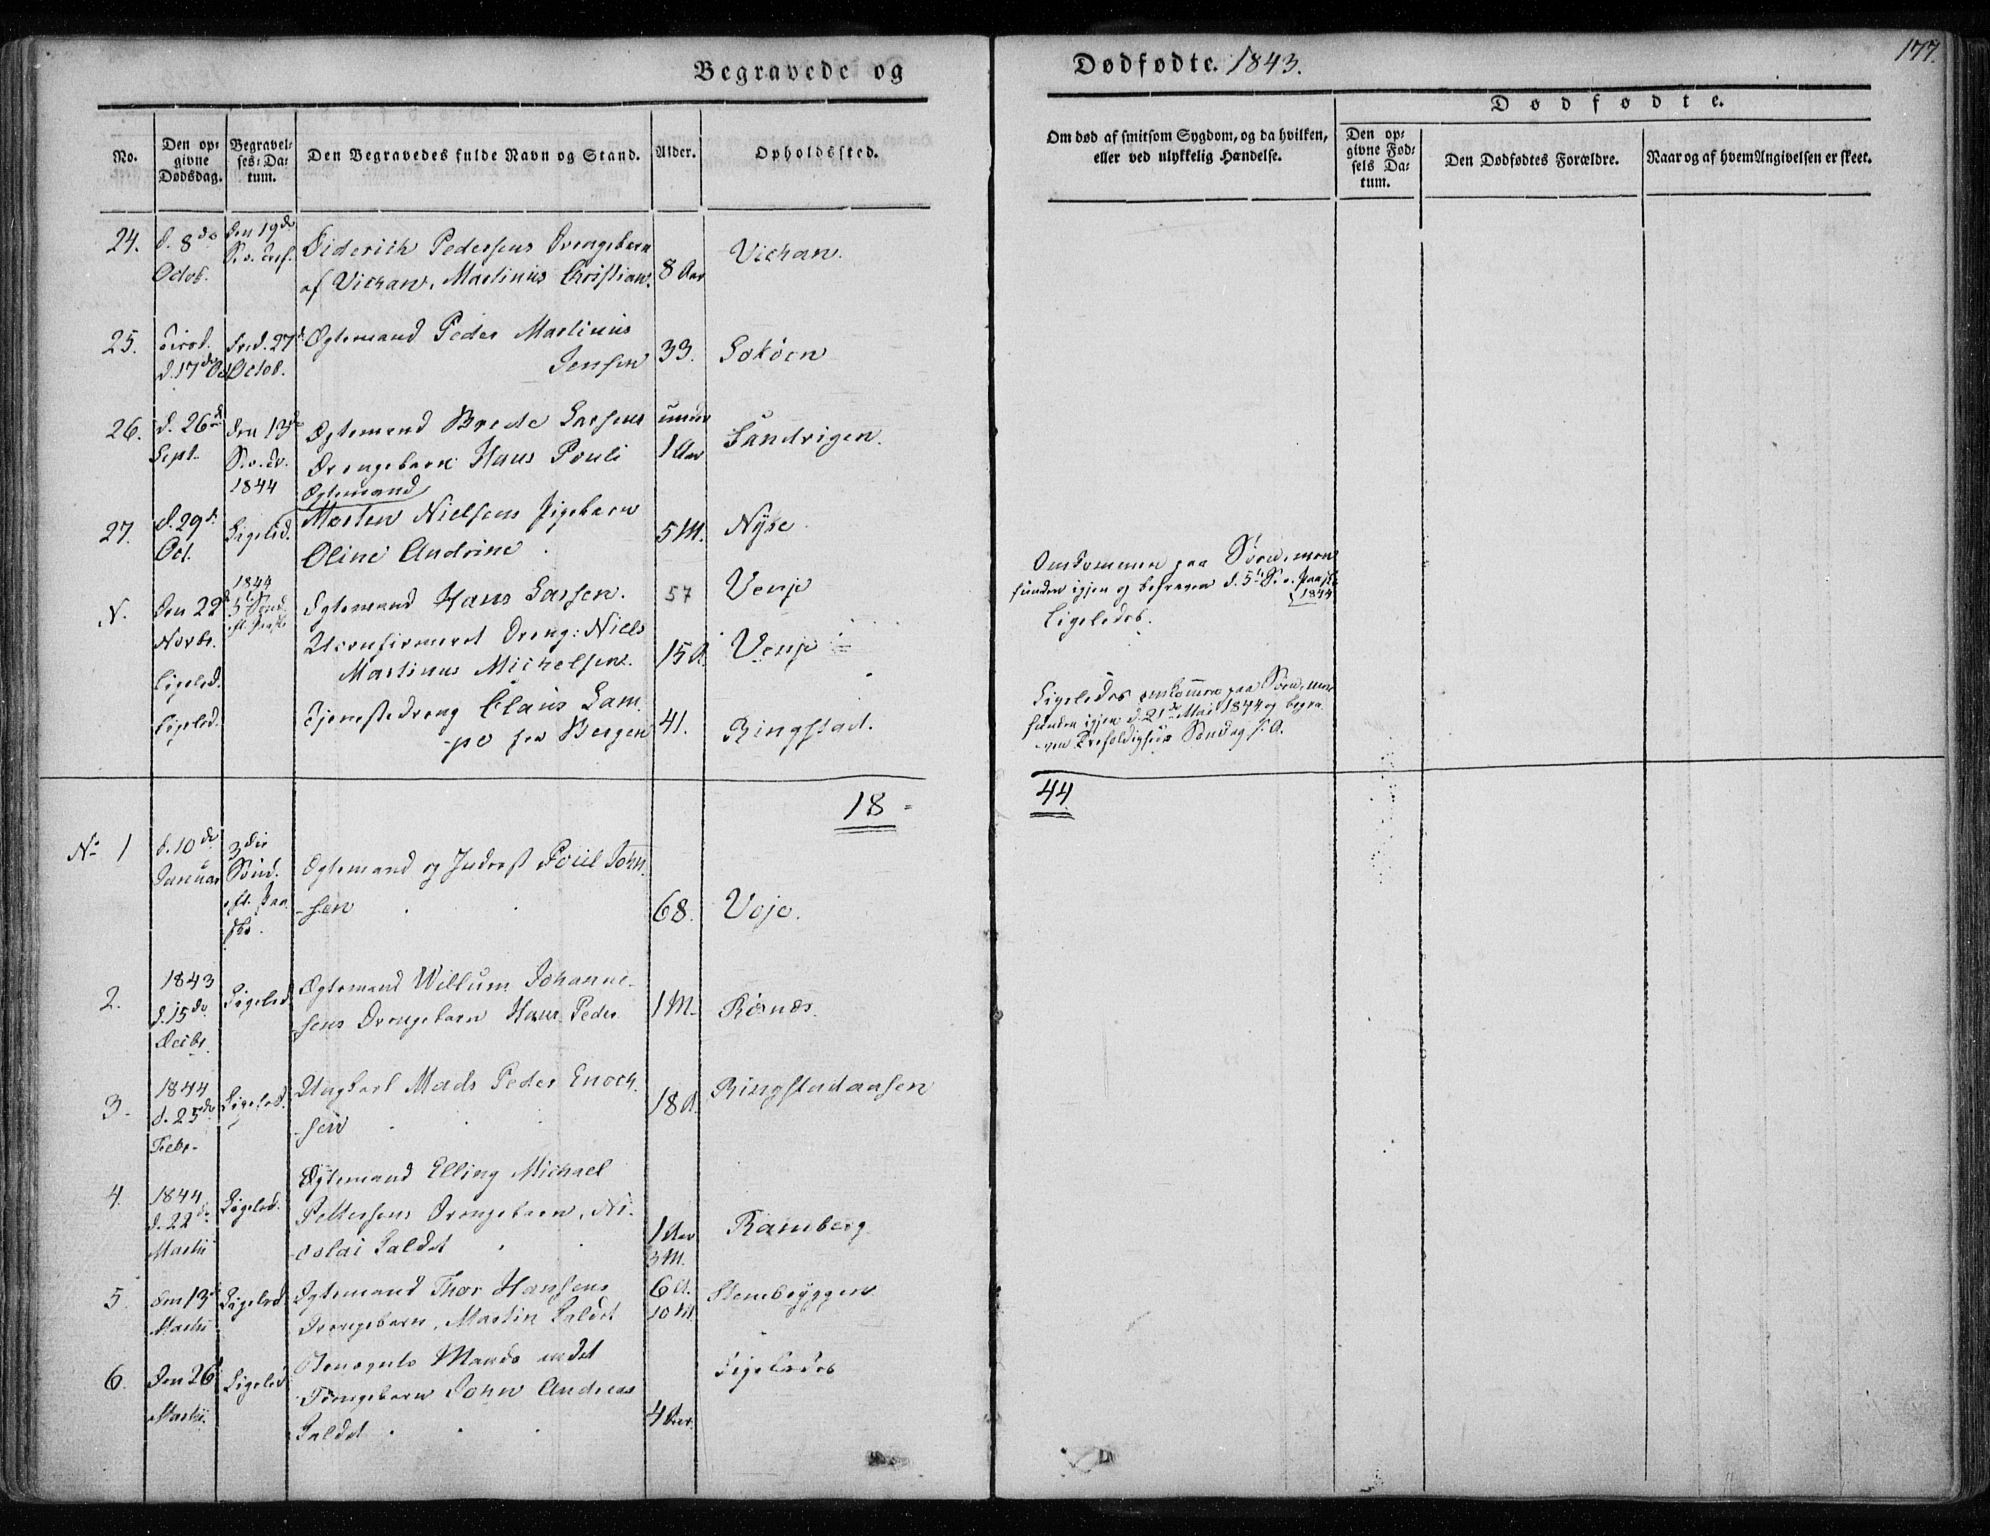 Begravede og
Dødfødte. 1843.
177.
No.
Den op-
givne
Dødsdag.
Begravel-
ses-Da-
tum.
Den Begravedes fulde Navn og Stand.
Alder.
Opholdssted.
Om død af smitsom Sygdom, og da hvilken,
eller ved ulykkelig Hændelse.
Dødfødte.
Den op-
givne Fød-
sels Da-
tum.
Den Dødfødtes Forældre.
Naar og af hvem Angivelsen er skeet.
24.
d. 8de
Octob.
den 19de
Diderich Pedersens Drengebarn
af Vichan, Martinus Christian.
8 Aar
Vichan.
25.
d. 17de Oct
d. 27d
Octob.
Ægtemand Peder Martinus
Jensen
33.
26.
d. 26de
Sept.
den 13de
1844
Ægtemand Brede Larsens
Drengebarn Hans Pouli
under
1 Aar
Sandvigen.
27.
d. 29d.
Oct.
Ligeled.
Ægtemand
Morten Nielsens Pigebarn
Oline Andrine
5 M.
N.
Den 22d
Novbr.
1844
5 Sønd.
Ægtemand Hans Larsen.
57
Omkommen paa Søen, men
funden igjen og begraven d. 5te S. e. Paaske
1844
Ligeled.
Uconfirmeret Dreng: Niels
Martinus Michelsen.
15 A.
Ligeledes.
Ligeled.
Tjenestedreng Claus Lam-
-pe fra Bergen
41.
Ringstad.
Ligeledes omkommen paa Søen, men
funden igjen d. 21de Mai 1844 og begra-
ven Trefoldigheds Søndag s. A.
18
44
No 1
d. 10de
Januar
3die
Sønd.
eft. Paa-
ske.
Ægtemand og Inderst Poul John-
-sen
68.
2.
1843
d. 15de
Decbr.
Ligeled.
Ægtemand Willum Johanne-
-sens Drengebarn Hans Peder
1 M.
3.
1844
d. 25de
Febr.
Ligeled.
Ungkarl Mads Peder Enoch-
-sen
18 A.
Ringstadaasen
4.
1844
d. 22de
Martii
Ligeled.
Ægtemand Elling Michael
Pettersens Drengebarn, Ni-
colai Kaldet
1 Aar
3 M.
Ramberg
5.
den 13d
Martii
Ligeled.
Ægtemand Thor Hansens
Drengebarn, Martin Kaldet
6 A.
10 M.
6.
Den 26d
Martii.
Ligeled.
Drengebarn John Andreas
Kaldet
4 Aar.
Ligeledes